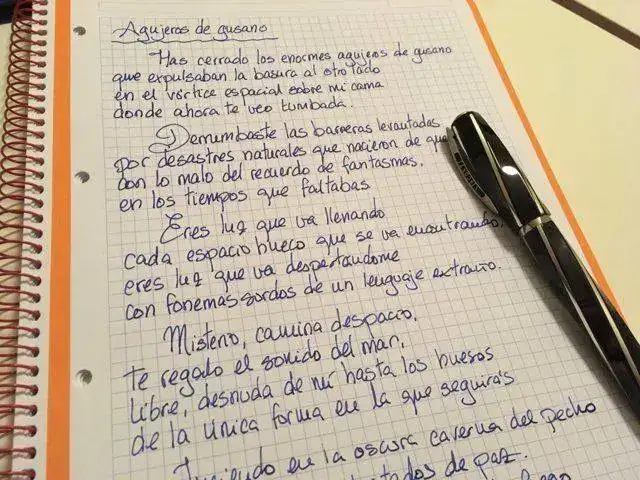 Agujeros de gusano
Has cerrado los enormes agujeros de gusano
que expulsaban la basura al otro lado
en el vórtice espacial sobre mi cama
donde ahora te veo tumbada.
Derrumbaste las barreras levantadas
por desastres naturales que nacieron de que
con lo malo del recuerdo de fantasmas.
en los tiempos que faltabas
Eres luz que va llenando
cada espacio hueco que se va encontrando,
eres luz que va despertandome
con fonemas sordos de un lenguaje extraño.
Misterio, camina despacio.
te regalo el sonido del mar.
libre, desnuda de mí hasta los huesos
de la única forma en la que seguirás
en la oscura caverna del pecho
de paz.